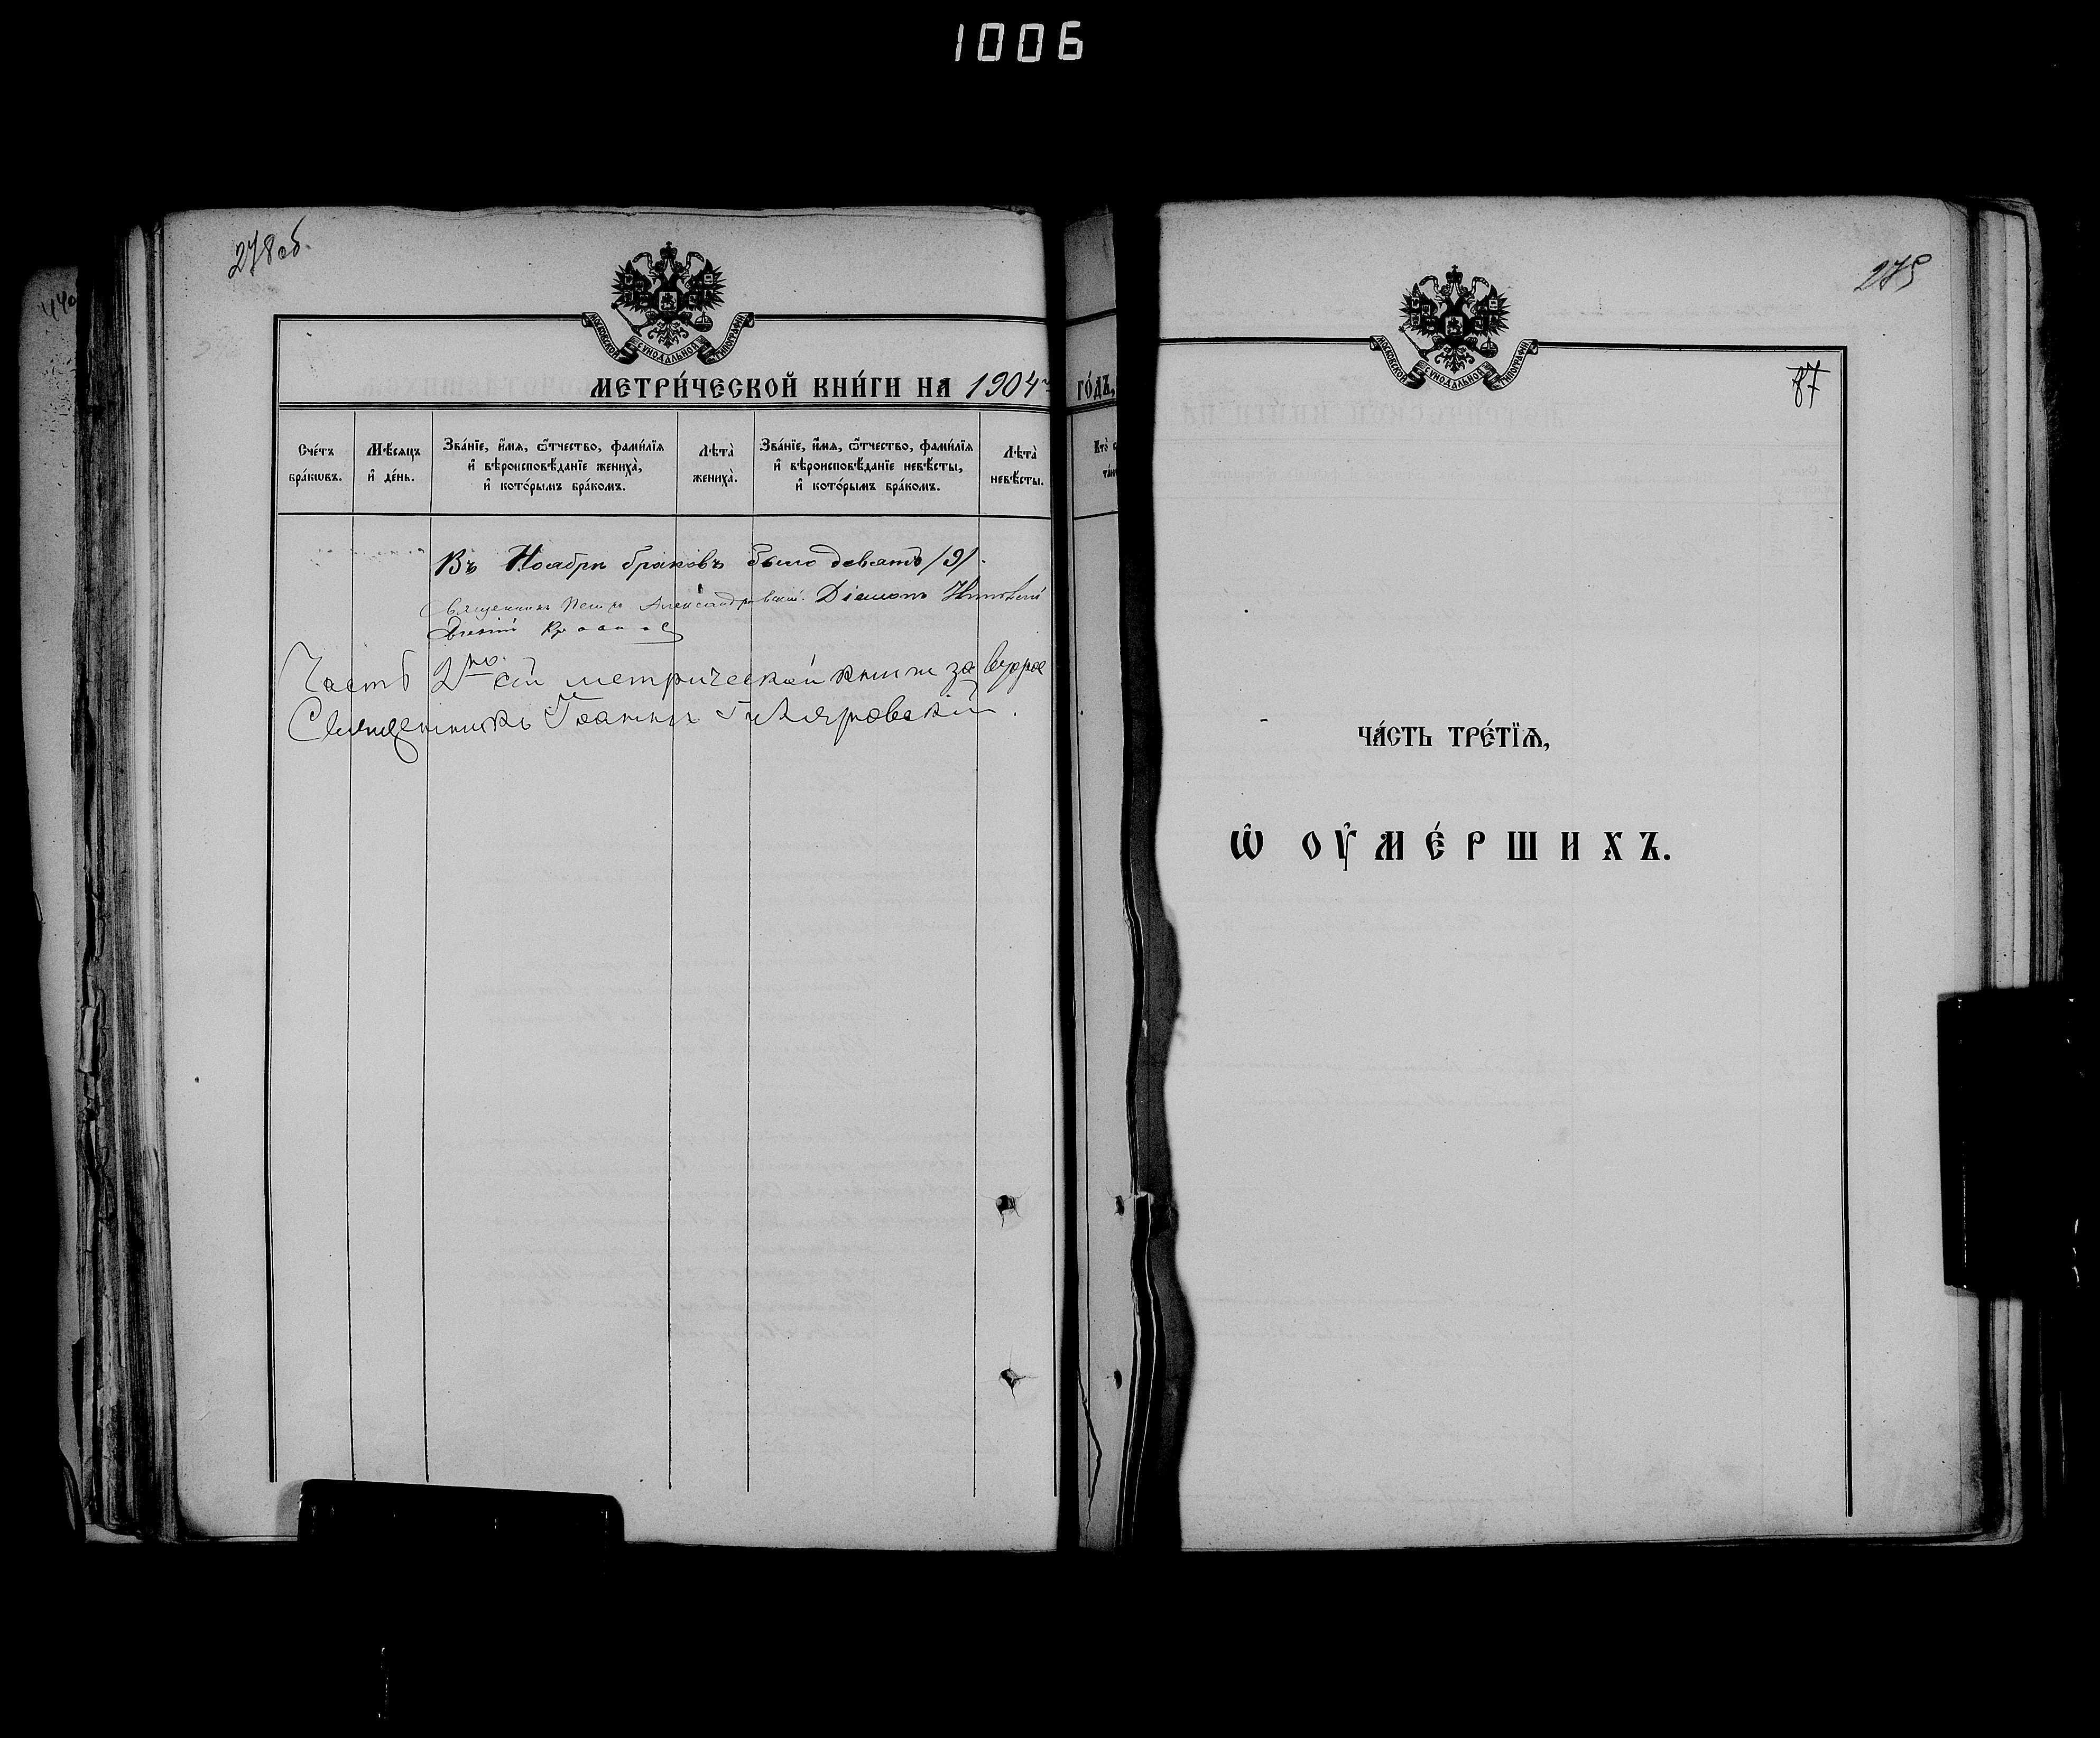 1006
278об.
МОСКОВСКОЙ СѴНОДАЛЬНОЙ ТИПОГРАФІИ
МЕТРИ́ЧЕСКОЙ КНИ́ГИ НА 1904 ГО́ДЪ,
Сче́тъ бра́кωвъ.
Мѣ́сяцъ и҆ де́нь.
Зва́нїе, и҆́мя, ѻ҆́тчество, фами́лїя
и҆ вѣроисповѣ́данїе жениха̀,
и҆ кото́рымъ бра́комъ.
Лѣта̀ жениха̀.
Зва́нїе, и҆́мя, ѻ҆́тчество, фами́лїя
и҆ вѣроисповѣ́данїе невѣ́сты,
и҆ кото́рымъ бра́комъ.
Лѣта̀ невѣ́сты.
Кто̀
Въ Ноябрѣ браковъ было девять /9/.
Священникъ Петръ Александровскій. Діаконъ
Часть 2ю сей метрической книги
Священникъ Іоаннъ Гиляровскій.
МОСКОВСКОЙ СѴНОДАЛЬНОЙ ТИПОГРАФІИ
87
ЧА́СТЬ ТРЕ́ТЇѦ,
Ѡ҆ ОУ҆МЕ́РШИХЪ.